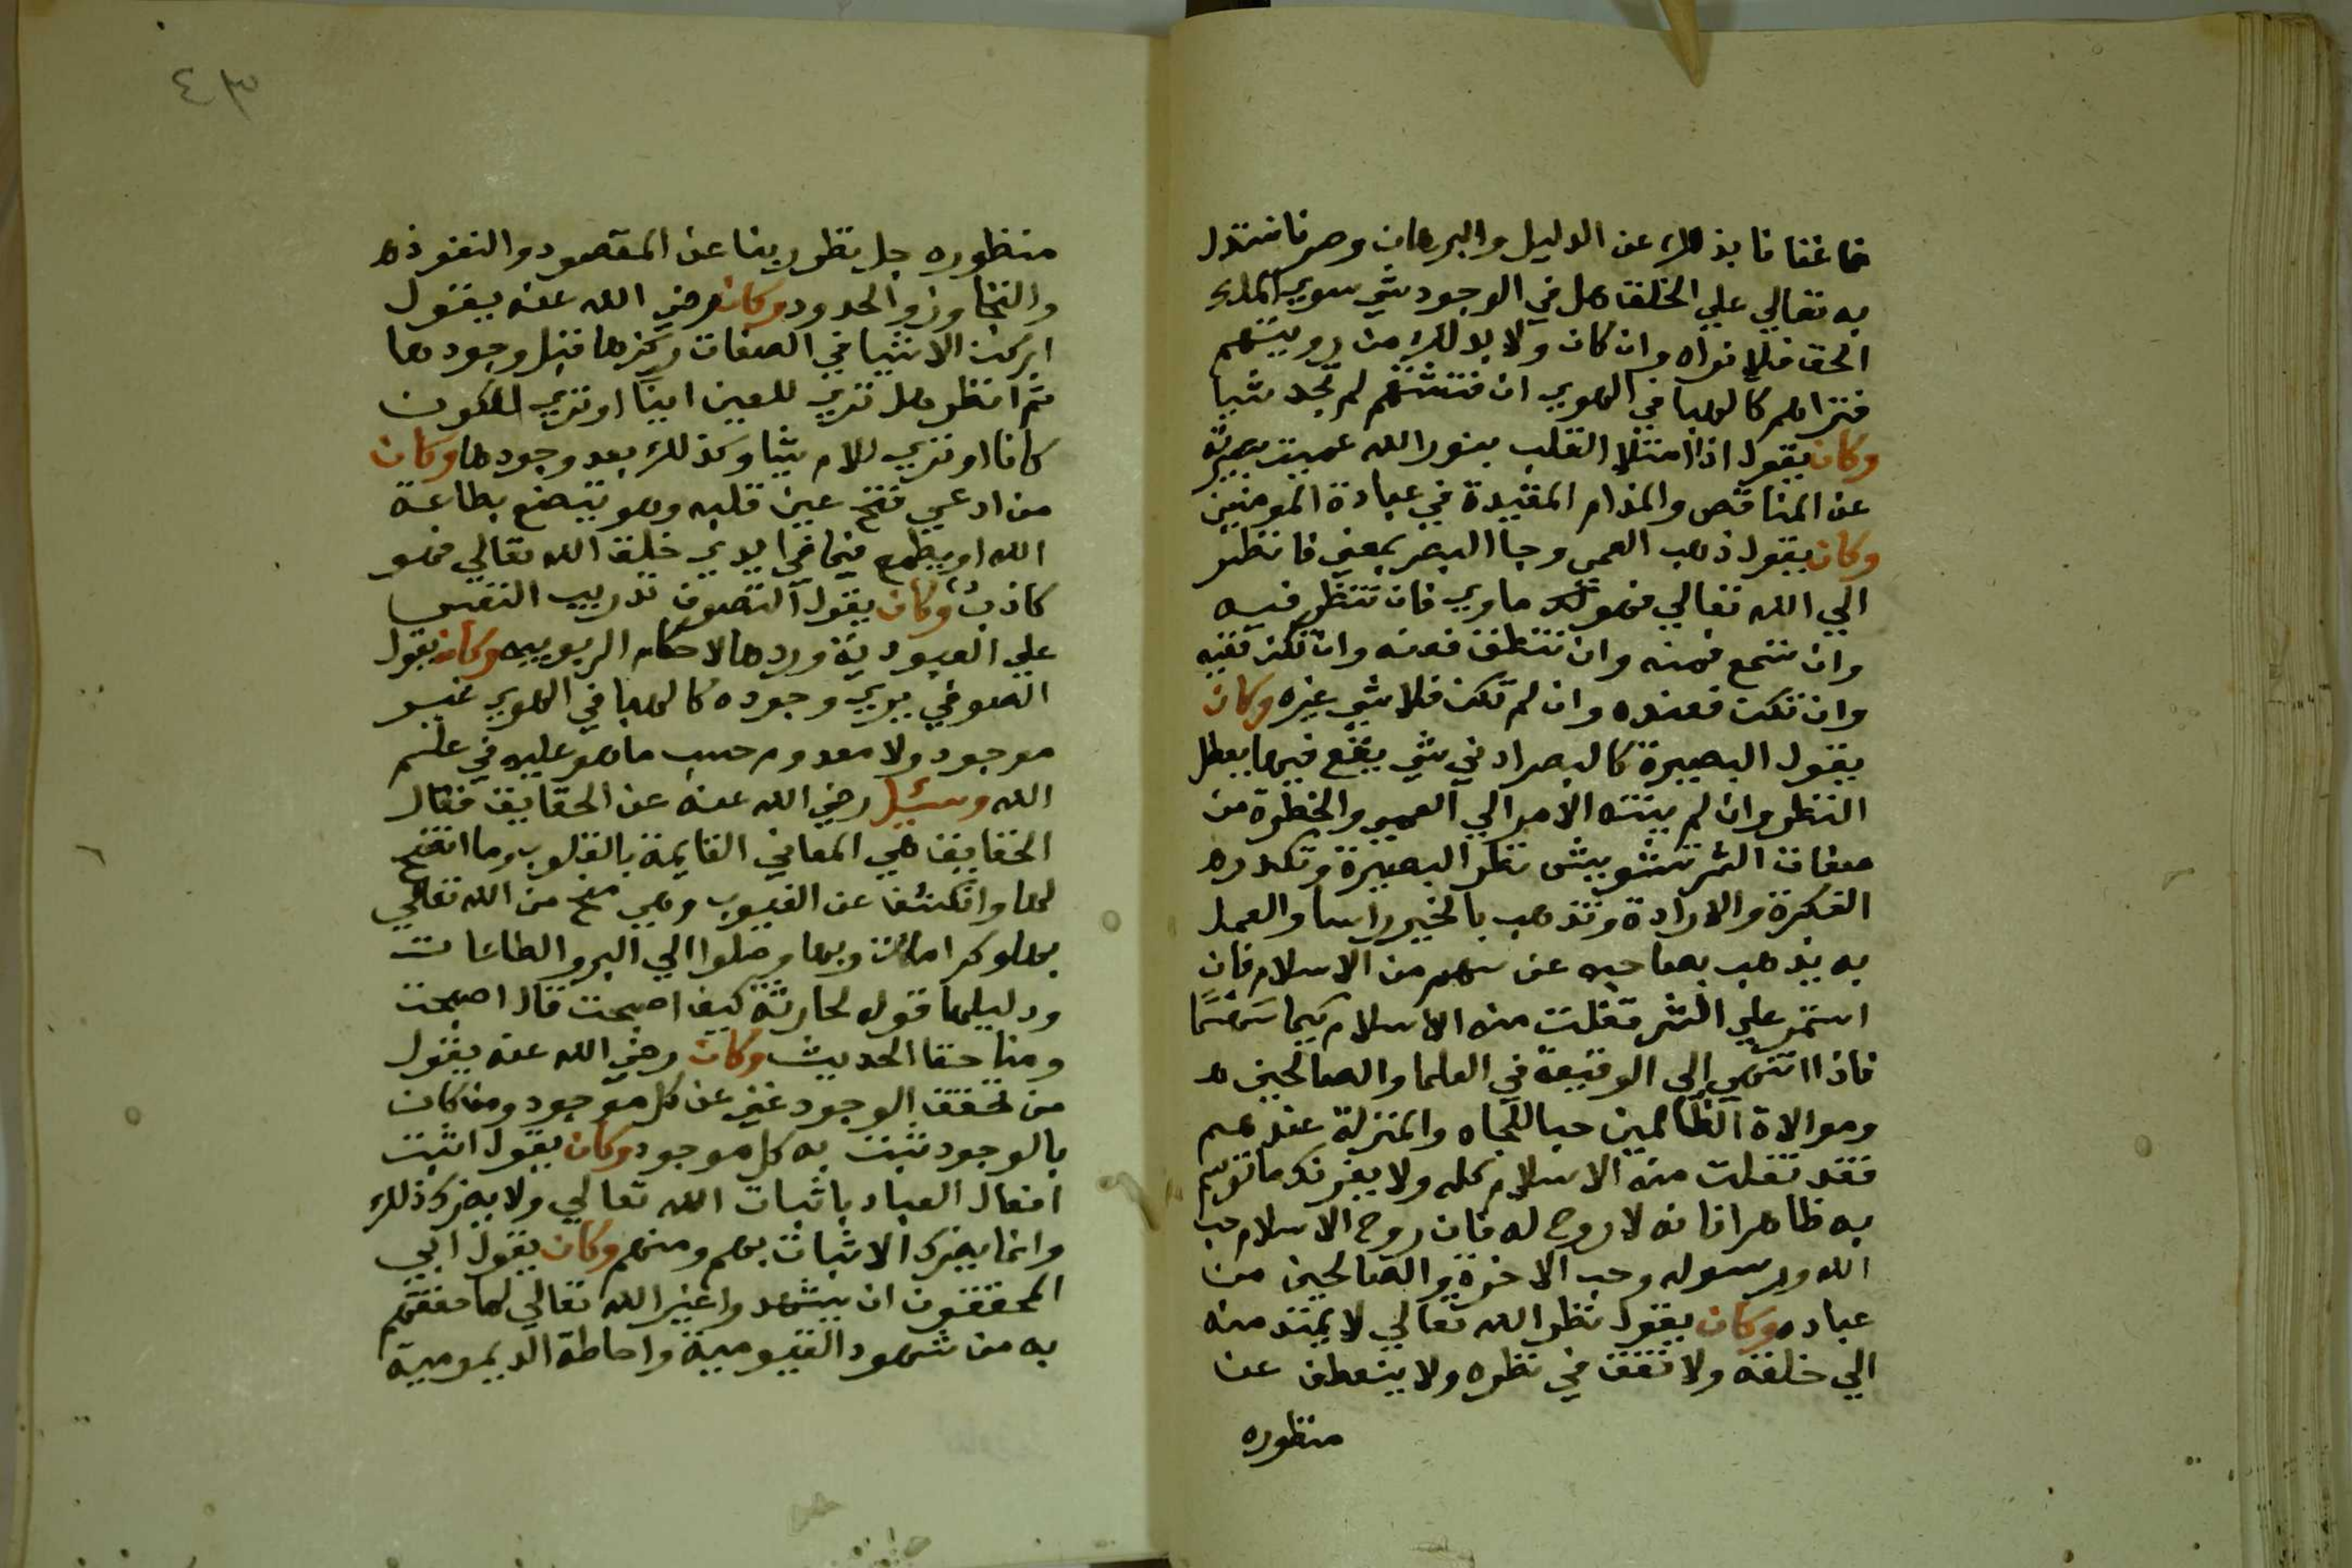 فاغنانا بذلك عن الدليل والبرهان وصرنا نستدل
به تعالي علي الخلق هل في الوجود شي سوي الملك
الحق فلا نراه وان كان ولا بد لك من رويتهم
فتراهم كالهبا في الهوي ان فتشتهم لم تجد شيا
وكان يقول اذا امتلا القلب بنور الله عميت بصيرته
عن المناقص والمذام المقيدة في عبادة المومنين
وكان يقول ذهب العمي وجا البصر بمعني فانظر
الي الله تعالي فهو لك ماوي فان تنظر فبه
وان تسمع فمنه وان تنطق فعنه وان تكن ففيه
وان تكن فعنده وان لم تكن فلا شي غيره وكان
يقول البصيرة كالبصر ادني شي يقع فيها يعطل
النظر وان لم ينته الامر الي العمي والخطرة من
صفات الشر تشوش نظر البصيرة وتكدر
الفكرة والارادة وتذهب بالخير راسا والعمل
به يذهب بصاحبه عن سهم من الاسلام فان
استمر علي الشر تفلت منه الاسلام سهما سهما
فاذا انتهي الي الوقيعة في العلما والصالحين
وموالاة الظالمين حبا للجاه والمنزلة عندهم
فقد تفلت منه الاسلام كله ولا يغرنك ما توسم
به ظاهرا فانه لا روح له فان روح الاسلام حب
الله ورسوله وحب الاخرة والصالحين من
عباده وكان يقول نظر الله تعالي لا يمتد منه
الي خلقه ولا تقف في نظره ولا ينعطف عن
منظوره
٤٣
منظوره جل نظر ربنا عن المقصود والنفوذ
والتجاوز والحدود وكان رضي الله عنه يقول
اركت الاشيا في الصفات ركزها قبل وجودها
ثم انظر هل تري للعين اينا او تري للكون
كانا او تري للامر شيا وكذلك بعد وجودها وكان
من ادعي فتح عين قلبه وهو يتصنع بطاعة
الله او يطمع فيما في ايدي خلق الله تعالي فهو
كاذب وكان يقول التصوف تدريب النفس
علي العبودية وردها لاحكام الربوبيه وكان يقول
الصوفي يري وجوده كالهبا في الهوي غير
موجود ولا معدوم حسب ما هو عليه في علم
الله وسئيل رضي الله عنه عن الحقايق فقال
الحقايق هي المعاني القايمة بالقلوب وما اتضح
لها وانكشف عن الغيوب وهي منح من الله تعالي
بها وكرامات وبها وصلوا الي البر والطاعات
ودليلها قوله لحارثة كيف اصبحت قال اصبحت
ومنا حقا الحديث وكان رضي الله عنه يقول
من تحقق الوجود غني عن كل موجود ومن كان
بالوجود ثبت به كل موجود وكان يقول اثبت
افعال العباد باثبات الله تعالي ولا يضرك ذلك
وانما يضرك الاثبات بهم ومنهم وكان يقول ابي
المحققون ان يشهدوا غير الله تعالي لما حققهم
به من شهود القيومية واحاطة الديمومية